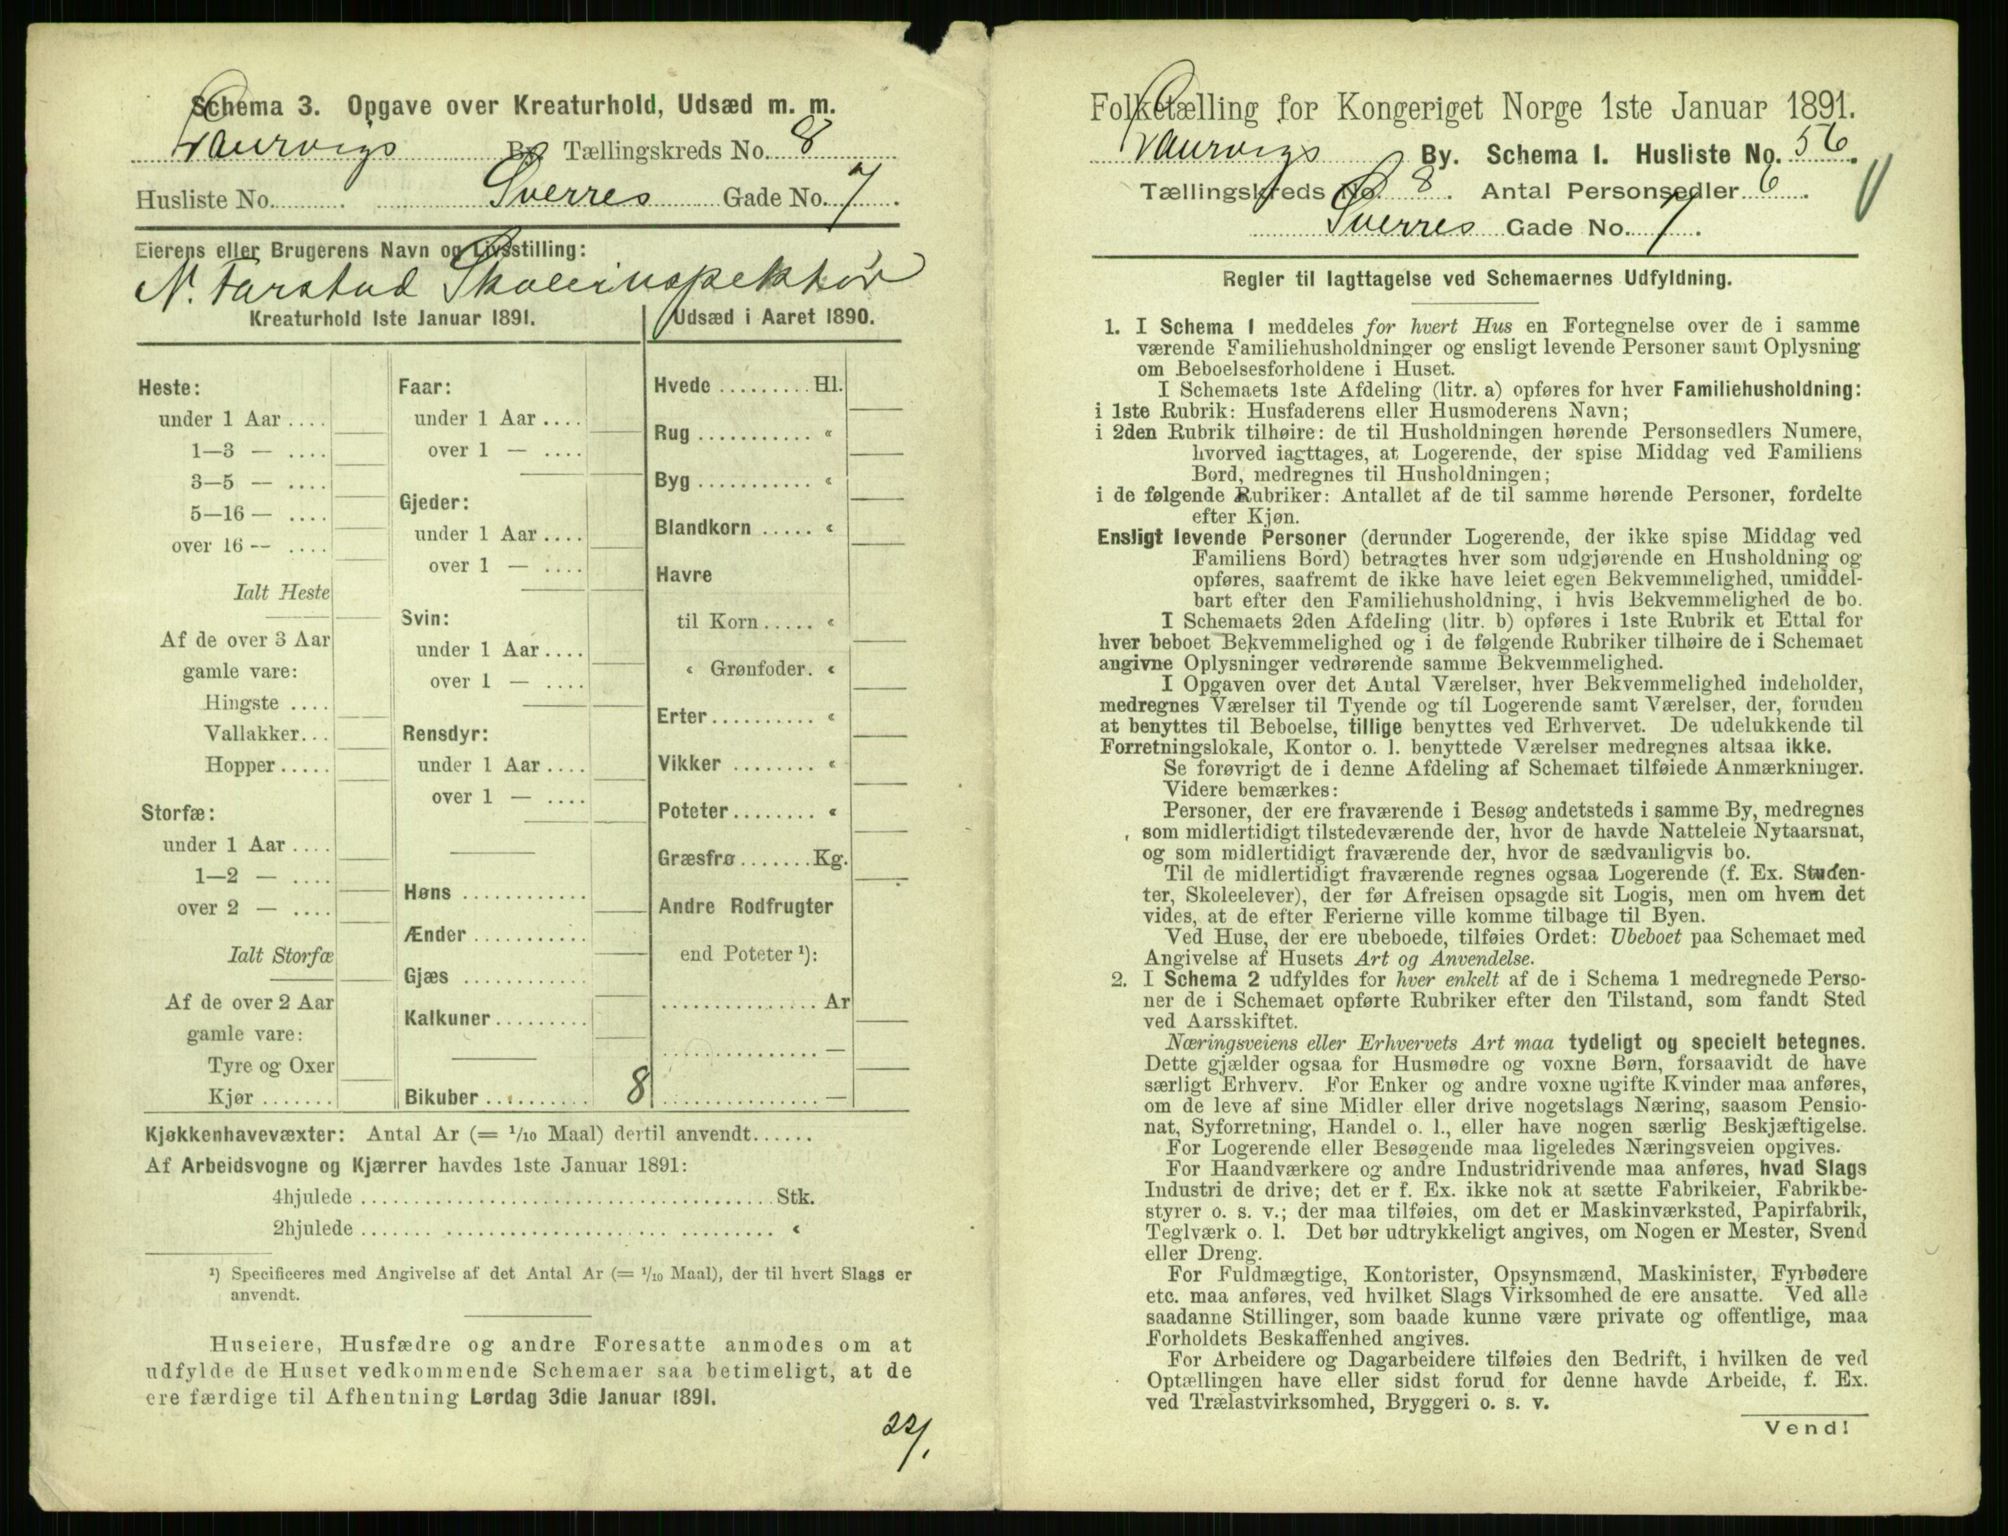 Schema 3. Opgave over Kreaturhold, Udsæd m. m.
Laurvigs By Tællingskreds No. 8
Husliste No. Sverres Gade No. 7
Eierens eller Brugerens Navn og Livsstilling:
N. Farstad Skoleinspektør
Kreaturhold 1ste Januar 1891.
Heste:
under 1 Aar ....
1—3 — ....
3—5 — ....
5—16 — ....
over 16 — ....
Ialt Heste
Af de over 3 Aar
gamle vare:
Hingste ....
Vallakker...
Hopper .....
Storfæ:
under 1 Aar ....
1—2 — ....
over 2 — ....
Ialt Storfæ
Af de over 2 Aar
gamle vare:
Tyre og Oxer
Kjør .......
Faar:
under 1 Aar ....
over 1 — ....
Gjeder:
under 1 Aar ....
over 1 — ....
Svin:
under 1 Aar ....
over 1 — ....
Rensdyr:
under 1 Aar ....
over 1 — ....
Høns ............
Ænder ...........
Gjæs ............
Kalkuner.........
Bikuber .......... 8
Udsæd i Aaret 1890.
Hvede ......... Hl.
Rug ........... «
Byg ........... «
Blandkorn ..... «
Havre
til Korn ..... «
« Grønfoder. «
Erter .......... «
Vikker ........ «
Poteter ........ «
Græsfrø ....... Kg.
Andre Rodfrugter
end Poteter ¹):
............... Ar
............... —
............... —
Kjøkkenhavevæxter: Antal Ar (= 1/10 Maal) dertil anvendt......
Af Arbeidsvogne og Kjærrer havdes 1ste Januar 1891:
4hjulede ........................................ Stk.
2hjulede ........................................ «
¹) Specificeres med Angivelse af det Antal Ar (= 1/10 Maal), der til hvert Slags er
anvendt.
Huseiere, Husfædre og andre Foresatte anmodes om at
udfylde de Huset vedkommende Schemaer saa betimeligt, at de
ere færdige til Afhentning Lørdag 3die Januar 1891.
22/1
Folketælling for Kongeriget Norge 1ste Januar 1891.
Laurvigs By. Schema 1. Husliste No. 56.
Tællingskreds No. 8. Antal Personsedler 6.
Sverres Gade No. 7.
Regler til Iagttagelse ved Schemaernes Udfyldning.
1. I Schema 1 meddeles for hvert Hus en Fortegnelse over de i samme
værende Familiehusholdninger og ensligt levende Personer samt Oplysning
om Beboelsesforholdene i Huset.
I Schemaets 1ste Afdeling (litr. a) opføres for hver Familiehusholdning:
i 1ste Rubrik: Husfaderens eller Husmoderens Navn;
i 2den Rubrik tilhøire: de til Husholdningen hørende Personsedlers Numere,
hvorved iagttages, at Logerende, der spise Middag ved Familiens
Bord, medregnes til Husholdningen;
i de følgende Rubriker: Antallet af de til samme hørende Personer, fordelte
efter Kjøn.
Ensligt levende Personer (derunder Logerende, der ikke spise Middag ved
Familiens Bord) betragtes hver som udgjørende en Husholdning og
opføres, saafremt de ikke have leiet egen Bekvemmelighed, umiddel-
bart efter den Familiehusholdning, i hvis Bekvemmelighed de bo.
I Schemaets 2den Afdeling (litr. b) opføres i 1ste Rubrik et Ettal for
hver beboet Bekvemmelighed og i de følgende Rubriker tilhøire de i Schemaet
angivne Oplysninger vedrørende samme Bekvemmelighed.
I Opgaven over det Antal Værelser, hver Bekvemmelighed indeholder,
medregnes Værelser til Tyende og til Logerende samt Værelser, der, foruden
at benyttes til Beboelse, tillige benyttes ved Erhvervet. De udelukkende til
Forretningslokale, Kontor o. l. benyttede Værelser medregnes altsaa ikke.
Se forøvrigt de i denne Afdeling af Schemaet tilføiede Anmærkninger.
Videre bemærkes:
Personer, der ere fraværende i Besøg andetsteds i samme By, medregnes
som midlertidigt tilstedeværende der, hvor de havde Natteleie Nytaarsnat,
og som midlertidigt fraværende der, hvor de sædvanligvis bo.
Til de midlertidigt fraværende regnes ogsaa Logerende (f. Ex. Studen-
ter, Skoleelever), der før Afreisen opsagde sit Logis, men om hvem det
vides, at de efter Ferierne ville komme tilbage til Byen.
Ved Huse, der ere ubeboede, tilføies Ordet: Ubeboet paa Schemaet med
Angivelse af Husets Art og Anvendelse.
2. I Schema 2 udfyldes for hver enkelt af de i Schema 1 medregnede Perso-
ner de i Schemaet opførte Rubriker efter den Tilstand, som fandt Sted
ved Aarsskiftet.
Næringsveiens eller Erhvervets Art maa tydeligt og specielt betegnes.
Dette gjælder ogsaa for Husmødre og voxne Børn, forsaavidt de have
særligt Erhverv. For Enker og andre voxne ugifte Kvinder maa anføres,
om de leve af sine Midler eller drive nogetslags Næring, saasom Pensio-
nat, Syforretning, Handel o. l., eller have nogen særlig Beskjæftigelse.
For Logerende eller Besøgende maa ligeledes Næringsveien opgives.
For Haandværkere og andre Industridrivende maa anføres, hvad Slags
Industri de drive; det er f. Ex. ikke nok at sætte Fabrikeier, Fabrikbe-
styrer o. s. v.; der maa tilføies, om det er Maskinværksted, Papirfabrik,
Teglværk o. l. Det bør udtrykkeligt angives, om Nogen er Mester, Svend
eller Dreng.
For Fuldmægtige, Kontorister, Opsynsmænd, Maskinister, Fyrbødere
etc. maa anføres, ved hvilket Slags Virksomhed de ere ansatte. Ved alle
saadanne Stillinger, som baade kunne være private og offentlige, maa
Forholdets Beskaffenhed angives.
For Arbeidere og Dagarbeidere tilføies den Bedrift, i hvilken de ved
Optællingen have eller sidst forud for denne havde Arbeide, f. Ex.
ved Trælastvirksomhed, Bryggeri o. s. v.
Vend!